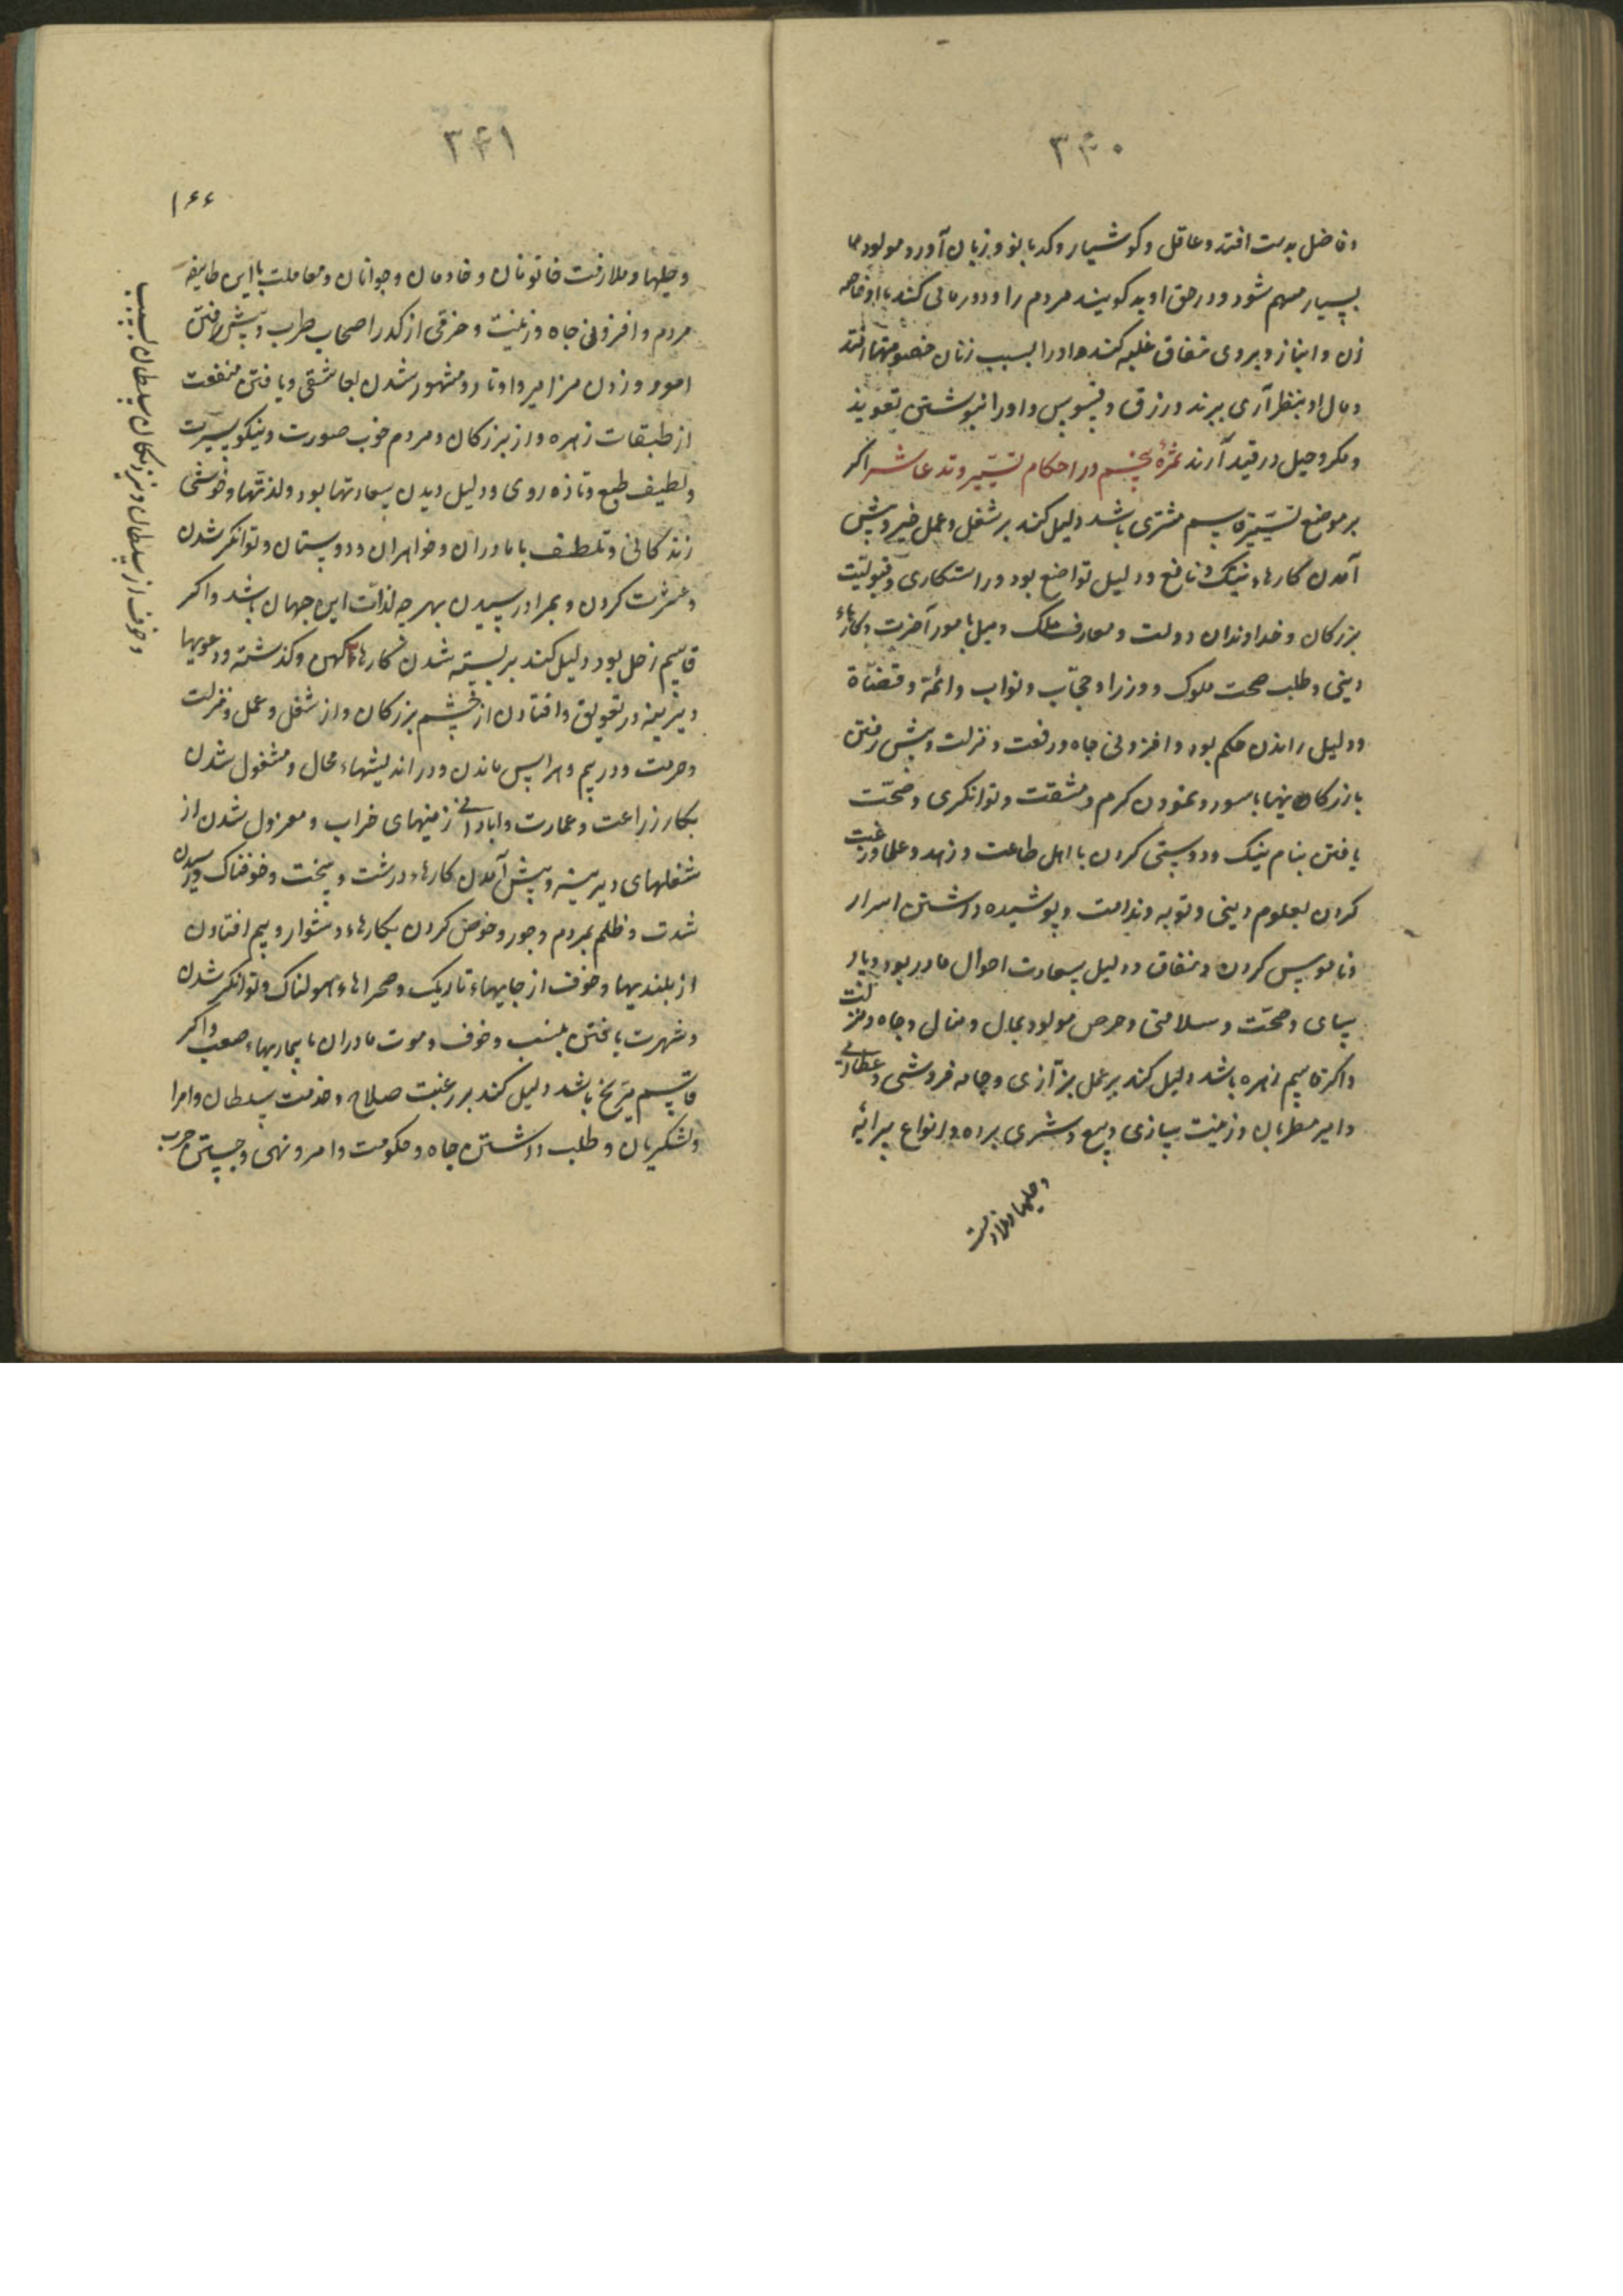 ۳۴۰
وفاضل بدست افتد وعاقل وکوشیار وکدبانو وزبان آور ومولود را
بسیار مهم شود ودرحق او بد کویند مردم را ودورمانی کنند با او خاصه
زن وانباز وبروی نفاق غلبه کنند واورا بسبب زنان خصومتها افتد
ومال او بنظر آری ببرند ورزق وفسوس واورا نبوشتن تعویذ
ومکر وحیل درقید آرند ثمرۀ پنجم در احکام تسییر وتد عاشر اکر
بر موضع تسییر قاسم مشتری باشد دلیل کند بر شغل وعمل خیر وپیش
آمدن کارهاء نیک ونافع ودلیل تواضع بود وراستکاری وقبولیت
بزرکان وخداوندان دولت ومعارف ملک ومیل بامور آخرت وکارهاء
دینی وطلب صحبت ملوک ووزرا وحجاب ونواب وائمه وقضاة
ودلیل راندن حکم بود وافزونی جاه ورفعت ومنزلت وپیش رفتن
بازرکانیها باسور ونمودن کرم ومشقت وتوانکری وصحّت
یافتن بنام نیک ودوستی کردن با اهل طاعت وزهد وعلما ورغبت
کردن بعلوم دینی وتوبه وندامت وپوشیده داشتن اسرار
وناموس کردن ونفاق ودلیل سعادت احوال مادر بود وبار
سای وصحّت وسلامتی وحرص مولود بمال ومنال وجاه ومنزلت
واکر قاسم زهره باشد دلیل کند بر عمل بزّازی وجامه فروشی وعطاری
وامیر مطربان وزینت سازی وبیع وشری برده وانواع پیرائیه
وحلیها وملازمت
۳۴۱
۱۶۶
وحلیها وملازمت خاتونان وخادمان وجوانان ومعاملت با این طایفه
مردم وافزونی جاه وزینت وخرقی از کدر اصحاب طرب وپیش رفتن
امور وزدن مزامیر واوتار ومشهور شدن بعاشقی ویافتن منفعت
از طبقات زهره واز بزرکان ومردم خوب صورت ونیکو سیرت
ولطیف طبع وتازه روی ودلیل دیدن سعادتها بود ولذتها وخوشی
زندکانی وتلطف با مادران وخواهران ودوستان وتوانکر شدن
وعشرت کردن وبمراد رسیدن بهرچه لذّات این جهان باشد واکر
قاسم زحل بود دلیل کند بر بسته شدن کارهاء کهن وکذشته ودعویها
دیرینه در تعویق وافتادن از چشم بزرکان واز شغل وعمل ومنزلت
وحرمت ودر بیم وهراس ماندن ودر اندیشهاء محال ومشغول شدن
بکار زراعت وعمارت وابادانی زمینهای خراب ومعزول شدن از
شغلهای دیرینه وپیش آمدن کارهاء درشت وسخت وخوفناک ورسیدن
شدت وظلم بمردم وجور وخوض کردن بکارهاء دشوار وبیم افتادن
از بلندیها وخوف از جایهاء تاریک وصحراهاء هولناک وتوانکر شدن
وشهرت یافتن بنسب وخوف وموت مادران یا بیماریهاء صعب واکر
قاسم مرّیخ باشد دلیل کند بر رغبت صلاح وخدمت سلطان وامرا
ولشکریان وطلب داشتن جاه وحکومت وامر ونهی وجستن حرب
وخوف از سلطان ونزدیکان سلطان بسبب